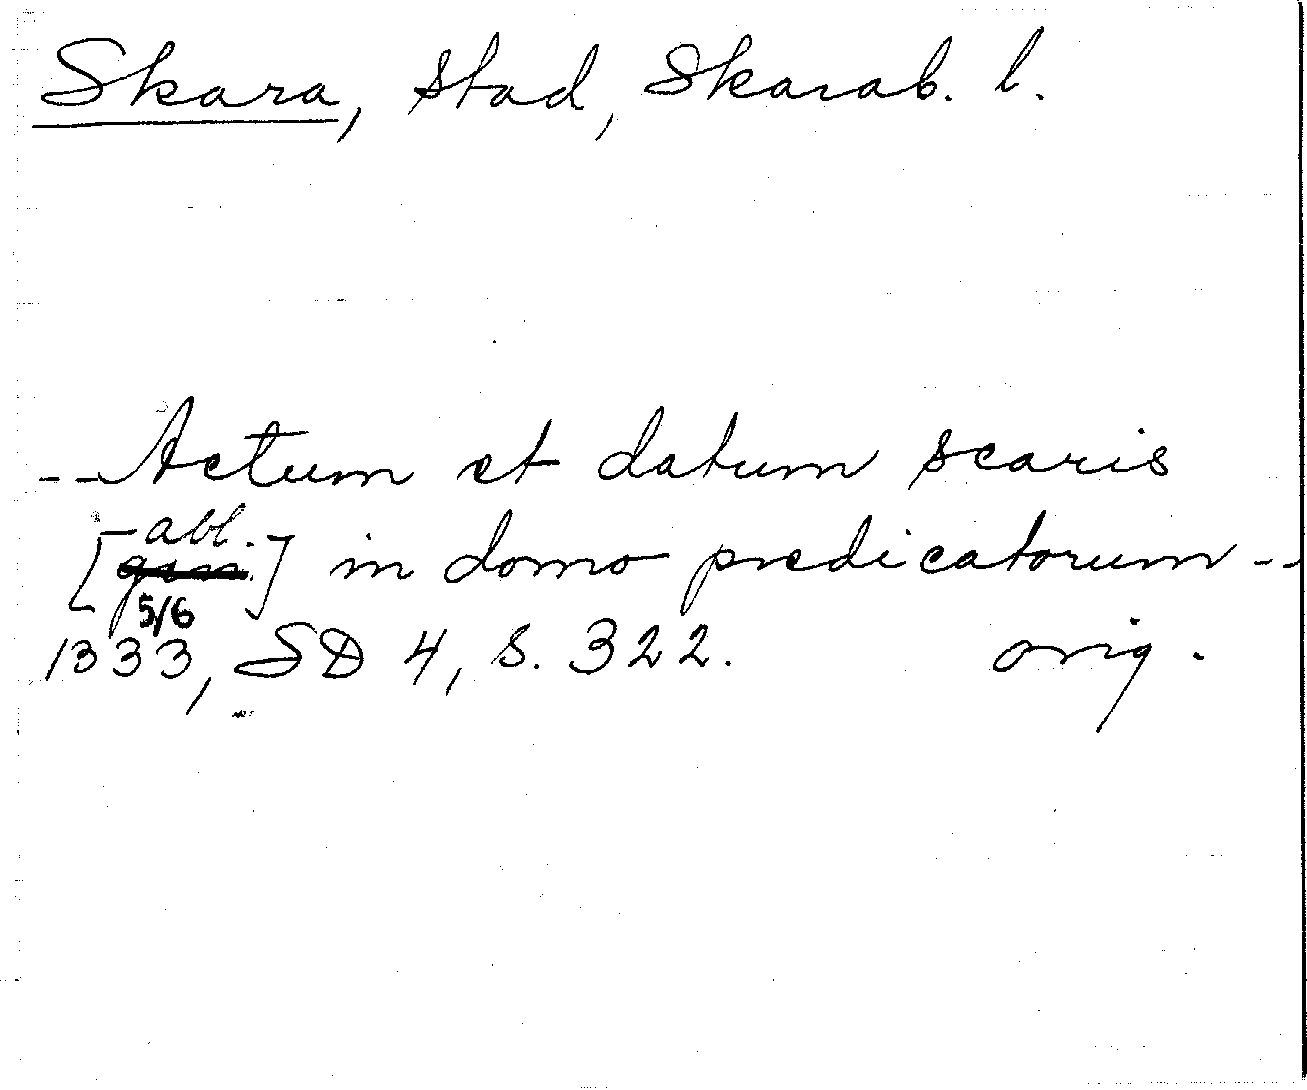 Skara, stad, Skarab. l.
--Actum et datum scaris
[abl.] in domo predicatorum--
5/6
1333, SD 4, s. 322. orig.